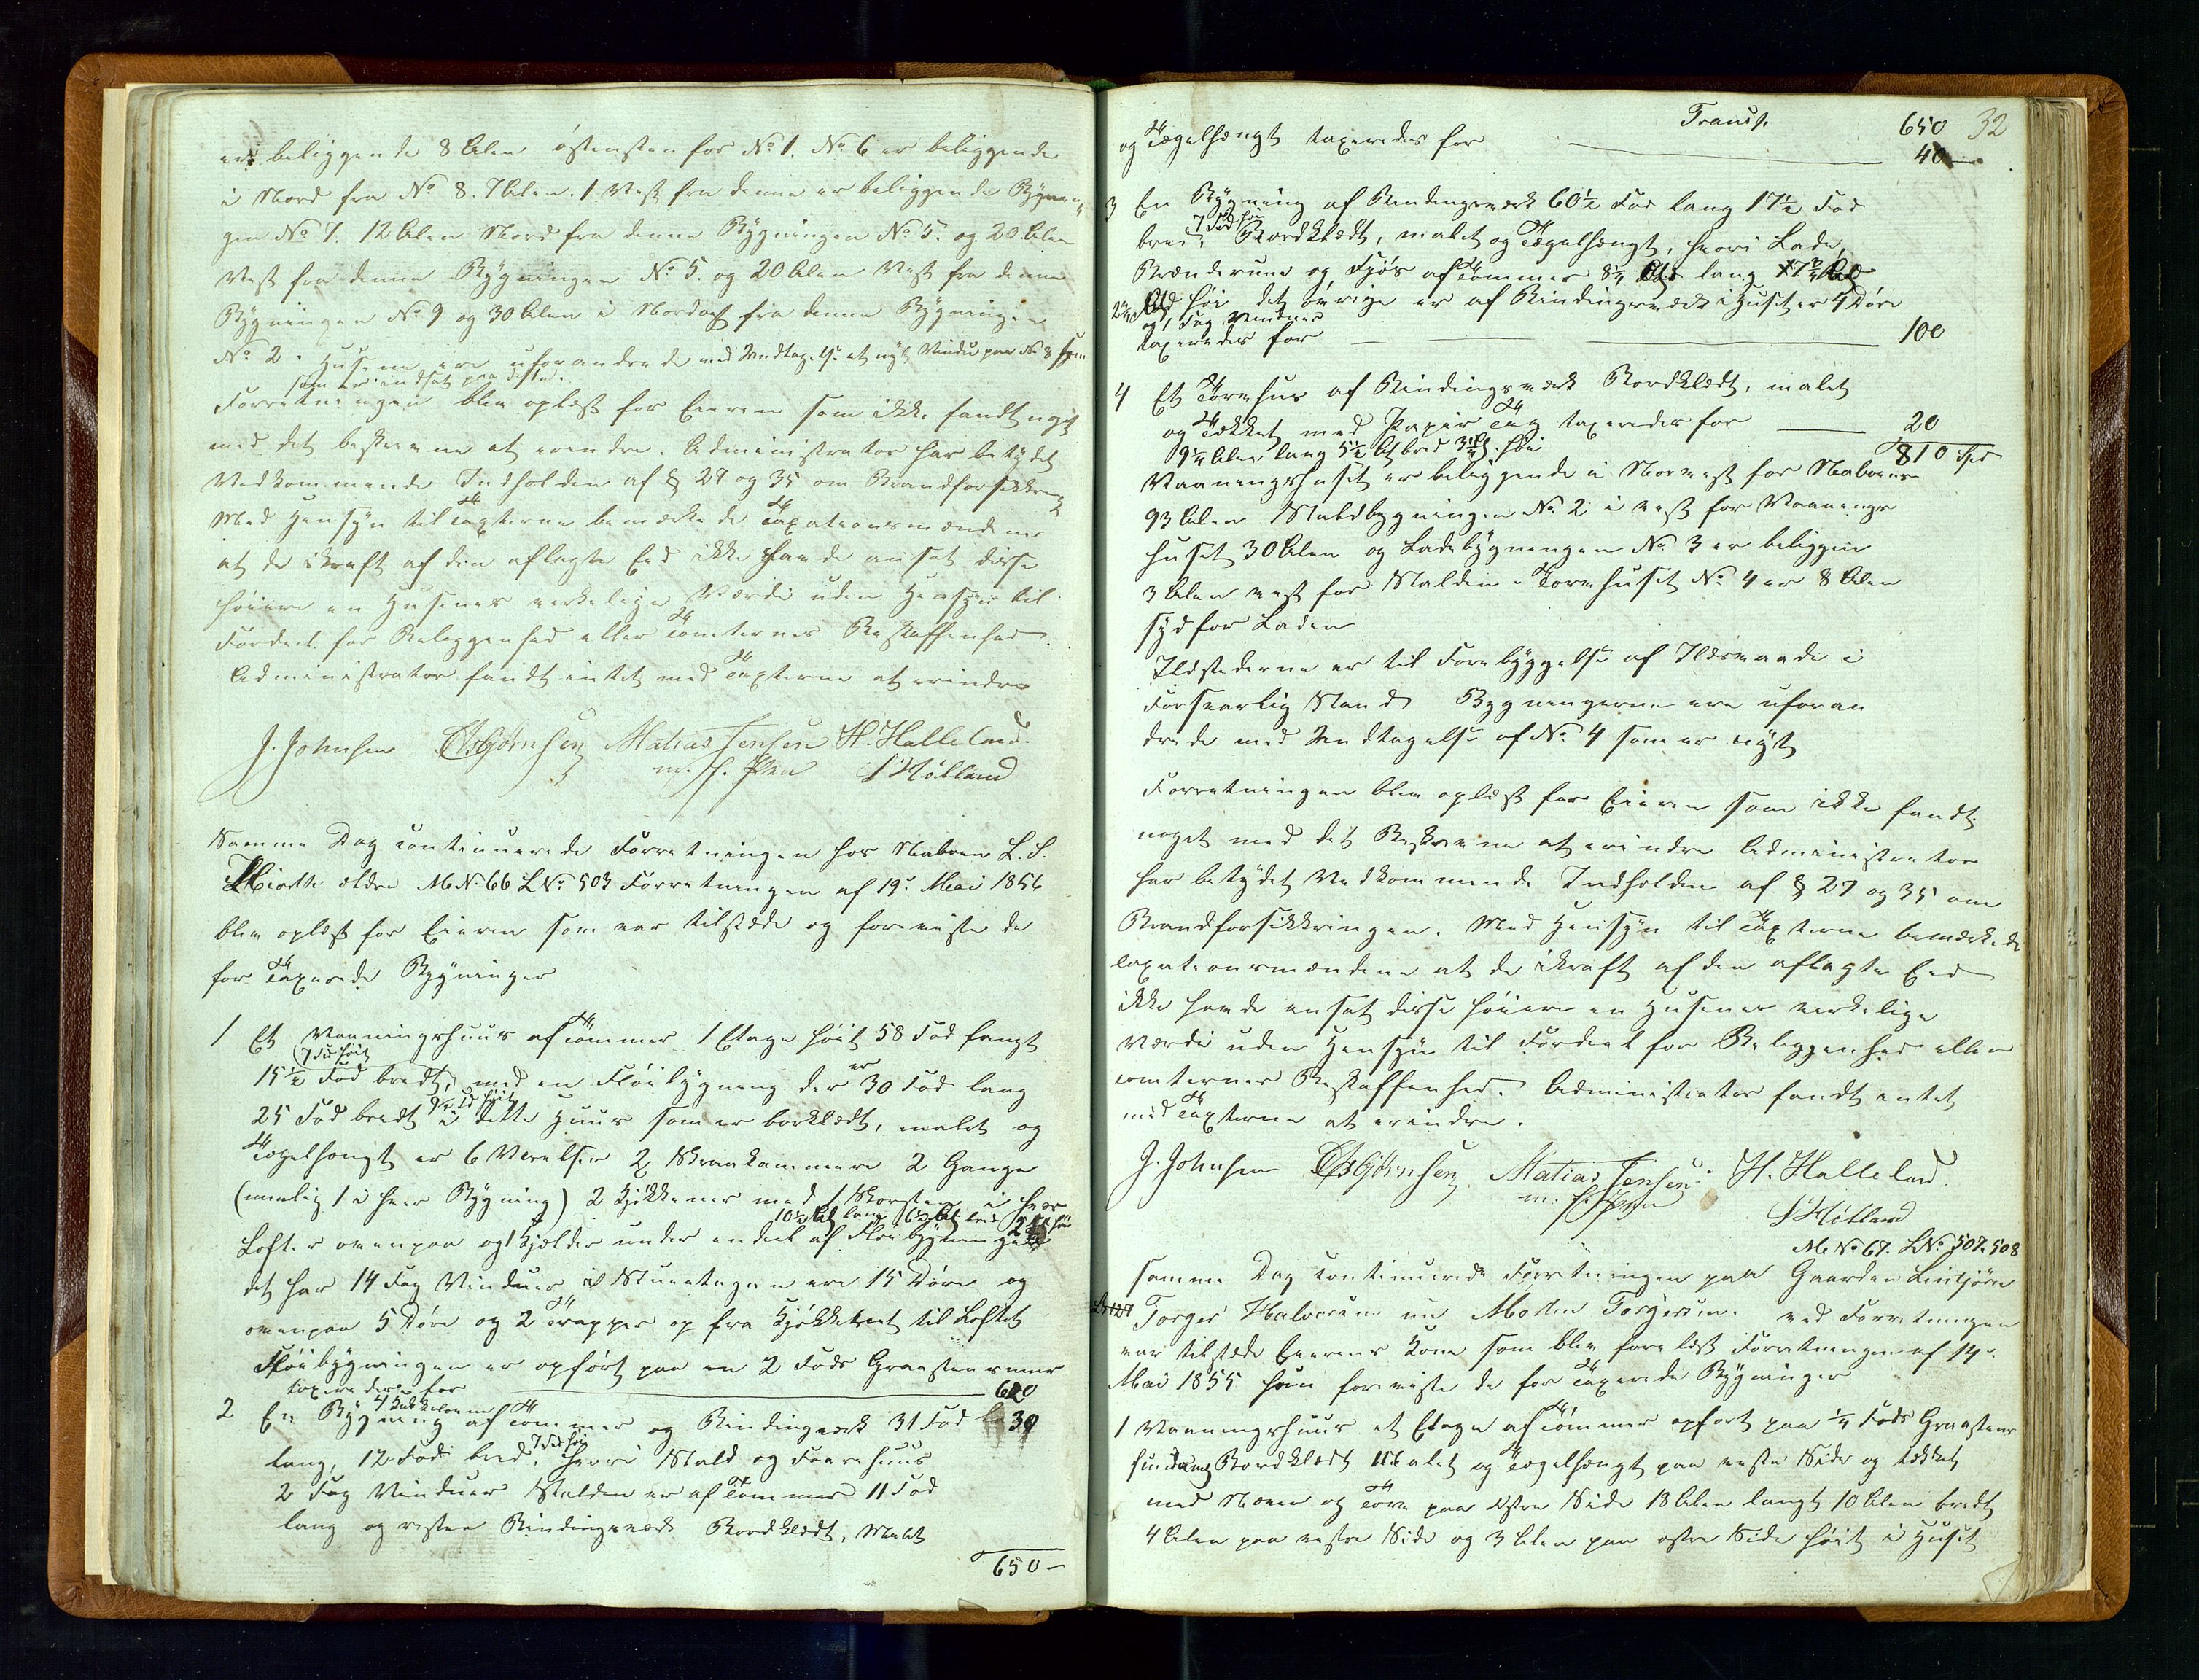 er beliggende 8 Alen østensten for No 1. No 6 er beliggende
i Nord fra No 8. 7 Alen. I Vest fra denne er beliggende Bygnin-
gen No 7. 12 Alen Nord fra denne Bygningen No 5. og 20 Alen
Vest fra denne Bygningen No 5. og 20 Alen Vest fra denne
Bygningen No 9 og 30 Alen i Nordost fra denne Bygningen
No 2. Husene ere uforandrede med Undtagelse at nyt Vindu paa No 8
som er indsat paa disse.
Forretningen blev oplæst for Eieren som ikke fandt noget
med det beskrevne at erindre. Administrator har betydet
Vedkommende Indholden af § 27 og 35 om Brandforsikkring
Med Hensyn til Taxterne bemærkede Taxationsmændene
at de ikraft af den aflagte Eed ikke havde ansat disse
høiere en Husenes verkelige Værdi uden Hensyn til
Fordeel for Beleggenhed eller Tomternes Beskaffenhed.
Administrator fandt intet med Taxterne at erindre
J. Johnsen E Asbjørnsen Matias Jensen H. Halleland.
m. f. Pen S Høiland
Samme Dag continuerede Forretningen hos Naboen L. S.
Kiorth ældre M No 66 L No 503 Forretningen af 19. Mai 1856
blev oplæst for Eieren som var tilstæde og foreviste de
for Taxerede Bygninger
1 Et Vaaningshuus af Tømmer 1 Etage høit 58 Fod langt
(7 Fod høit
15½ Fod bredt, med en Fløibygning der er 30 Fod lang
25 Fod bredt 9½ Fd høit i dette Huus som er borklædt, malet og
Tægelhængt er 6 Værelser 2 Kammere 2 Gange
(nemlig 1 i hver Bygning) 2 Kjøkkener med 1 Skorsten i hver
10½ Al lang 6½ Al bred 2 Al høi
Lofter ovenpaa og 1 Kjælder under endeel af Fløibygningen
det har 14 Fag Vinduer i Stueetagen ere 15 Døre og
ovenpaa 5 Døre og 2 Trapper op fra Kjøkkenet til Loftet
Fløibygningen er opført paa en 2 Fods Graasteensmuur
taxeredes for 620
2 En Bygning af Tømmer og Bindingværk 31 Fod 30
lang, 12 Fod bred, 7 Fod høi hvori Stald og Faarehuus
2 Fag Vinduer Stalden er af Tømmer 11 Fod
lang og resten Bindingsværk Bordklædt, Malet
650 –
Transp. 650 32
og Tægelhængt taxeredes for 40
3 En Bygning af Bindingsværk 60½ Fod lang 17½ Fod
bred, 7 Fod høi Bordklædt, malet og Tægelhængt, hvori Lade,
Brænderum og Fjøs af Tømmer 8¼ Al lang 7¾ Al
høi det øvrige er af Bindingsværk i Huset er 4 Døre
og 1 Fag Vinduer
taxeredes for 100
4 Et Tørvhus af Bindingsværk Bordklædt, malet
og Tækket med Papir Tag taxeredes for 20
9¼ Alen lang 5½ Al bred 3¼ Al høi 810 Spd
Vaaningshuset er beliggende i Norvest for Naboens
93 Alen Staldbygningen No 2 i vest for Vaanings
huset 30 Alen og Ladebygningen No 3 er beliggen
3 Alen vest for Stalden. Torvhuset No 4 er 8 Alen
syd for Laden
Ildstederne er til Forebyggelse af Ildsvaade i
Forsvarlig Stand Bygningerne ere uforan
drede med Undtagelse af No 4 som er nyt
Forretningen blev oplæst for Eieren som ikke fandt
noget med det Beskrevne at erindre Administrator
har betydet Vedkommende Indholden af § 27 og 35 om
Brandforsikkringen. Med Hensyn til Taxterne bemærkede
Taxationsmændene at de ikraft af den aflagte Eed
ikke havde ansat disse høiere en Husenes verkelige
Værdi uden Hensyn til Fordeel for Beleggenhed eller
Tomternes Beskaffenhed. Administrator fandt intet
med Taxterne at erindre.
J. Johnsen E Asbjørnsen Matias Jensen H. Halleland
m. f. Pen S Høiland
M No 67. L No 507. 508
samme Dag continuerede Forretningen paa Gaarden Lintjørn
Torger Halvorsen nu Morten Torgersen. ved Forretningen
var tilstæde Eierens Kone som blev forelæst Forretningen af 14.
Mai 1855 hun foreviste de for Taxerede Bygninger
1 Vaaningshuus et Etage af Tømmer opført paa ¼ Fods Graasteens
fundament Bordklædt Malet og Tægelhængt paa vestre Side og tækket
med Næver og Torv paa østre Side 18 Alen langt 10 Alen bredt
4 Alen paa vestre Side og 3 Alen paa østre Side høit i Huset